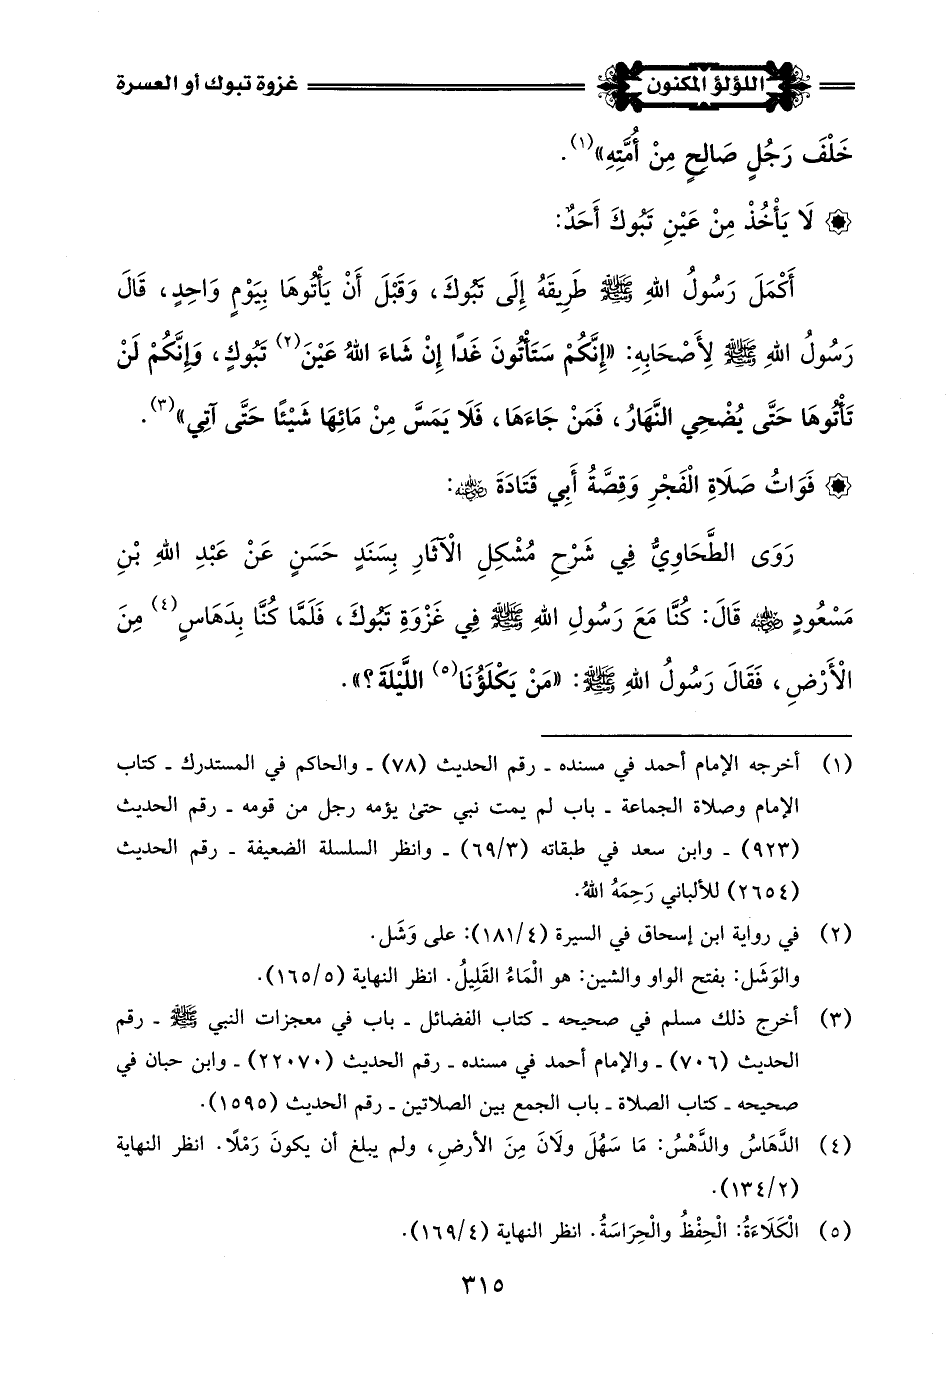 اللؤلؤ المكنون غزوة تبوك أو العسرة
خَلْفَ رَجُلٍ صَالِحٍ مِنْ أُمَّتِهِ»(١).
لَا يَأْخُذْ مِنْ عَيْنِ تَبُوكَ أَحَدٌ:
أَكْمَلَ رَسُولُ اللهِ ﷺ طَرِيقَهُ إِلَى تَبُوكَ، وَقَبْلَ أَنْ يَأْتُوهَا بِيَوْمٍ وَاحِدٍ، قَالَ
رَسُولُ اللهِ ﷺ لِأَصْحَابِهِ: «إِنَّكُمْ سَتَأْتُونَ غَدًا إِنْ شَاءَ اللهُ عَيْنَ(٢) تَبُوكٍ، وَإِنَّكُمْ لَنْ
تَأْتُوهَا حَتَّى يُضْحِي النَّهَارُ، فَمَنْ جَاءَهَا، فَلَا يَمَسَّ مِنْ مَائِهَا شَيْئًا حَتَّى آتِي»(٣).
فَوَاتُ صَلَاةِ الْفَجْرِ وَقِصَّةُ أَبِي قَتَادَةَ رضي الله عنه:
رَوَى الطَّحَاوِيُّ فِي شَرْحِ مُشْكِلِ الْآثَارِ بِسَنَدٍ حَسَنٍ عَنْ عَبْدِ اللهِ بْنِ
مَسْعُودٍ رضي الله عنه قَالَ: كُنَّا مَعَ رَسُولِ اللهِ ﷺ فِي غَزْوَةِ تَبُوكَ، فَلَمَّا كُنَّا بِدَهَاسٍ(٤) مِنَ
الْأَرْضِ، فَقَالَ رَسُولُ اللهِ ﷺ: «مَنْ يَكْلَؤُنَا(٥) اللَّيْلَةَ؟».
(١) أخرجه الإمام أحمد في مسنده ـ رقم الحديث (٧٨) ـ والحاكم في المستدرك ـ كتاب
الإمام وصلاة الجماعة ـ باب لم يمت نبي حتىٰ يؤمه رجل من قومه ـ رقم الحديث
(٩٢٣) ـ وابن سعد في طبقاته (٦٩/٣) ـ وانظر السلسلة الضعيفة ـ رقم الحديث
(٢٦٥٤) للألباني رَحِمَهُ اللهُ.
(٢) في رواية ابن إسحاق في السيرة (١٨١/٤): على وَشَل.
والوَشَل: بفتح الواو والشين: هو الْمَاءُ القَلِيلُ. انظر النهاية (١٦٥/٥).
(٣) أخرج ذلك مسلم في صحيحه ـ كتاب الفضائل ـ باب في معجزات النبي ﷺ ـ رقم
الحديث (٧٠٦) ـ والإمام أحمد في مسنده ـ رقم الحديث (٢٢٠٧٠) ـ وابن حبان في
صحيحه ـ كتاب الصلاة ـ باب الجمع بين الصلاتين ـ رقم الحديث (١٥٩٥).
(٤) الدَّهَاسُ والدَّهْسُ: مَا سَهُلَ ولَانَ مِنَ الأرضِ، ولم يبلغ أن يكونَ رَمْلًا. انظر النهاية
(١٣٤/٢).
(٥) الْكَلَاءَةُ: الْحِفْظُ والْحِرَاسَةُ. انظر النهاية (١٦٩/٤).
٣١٥